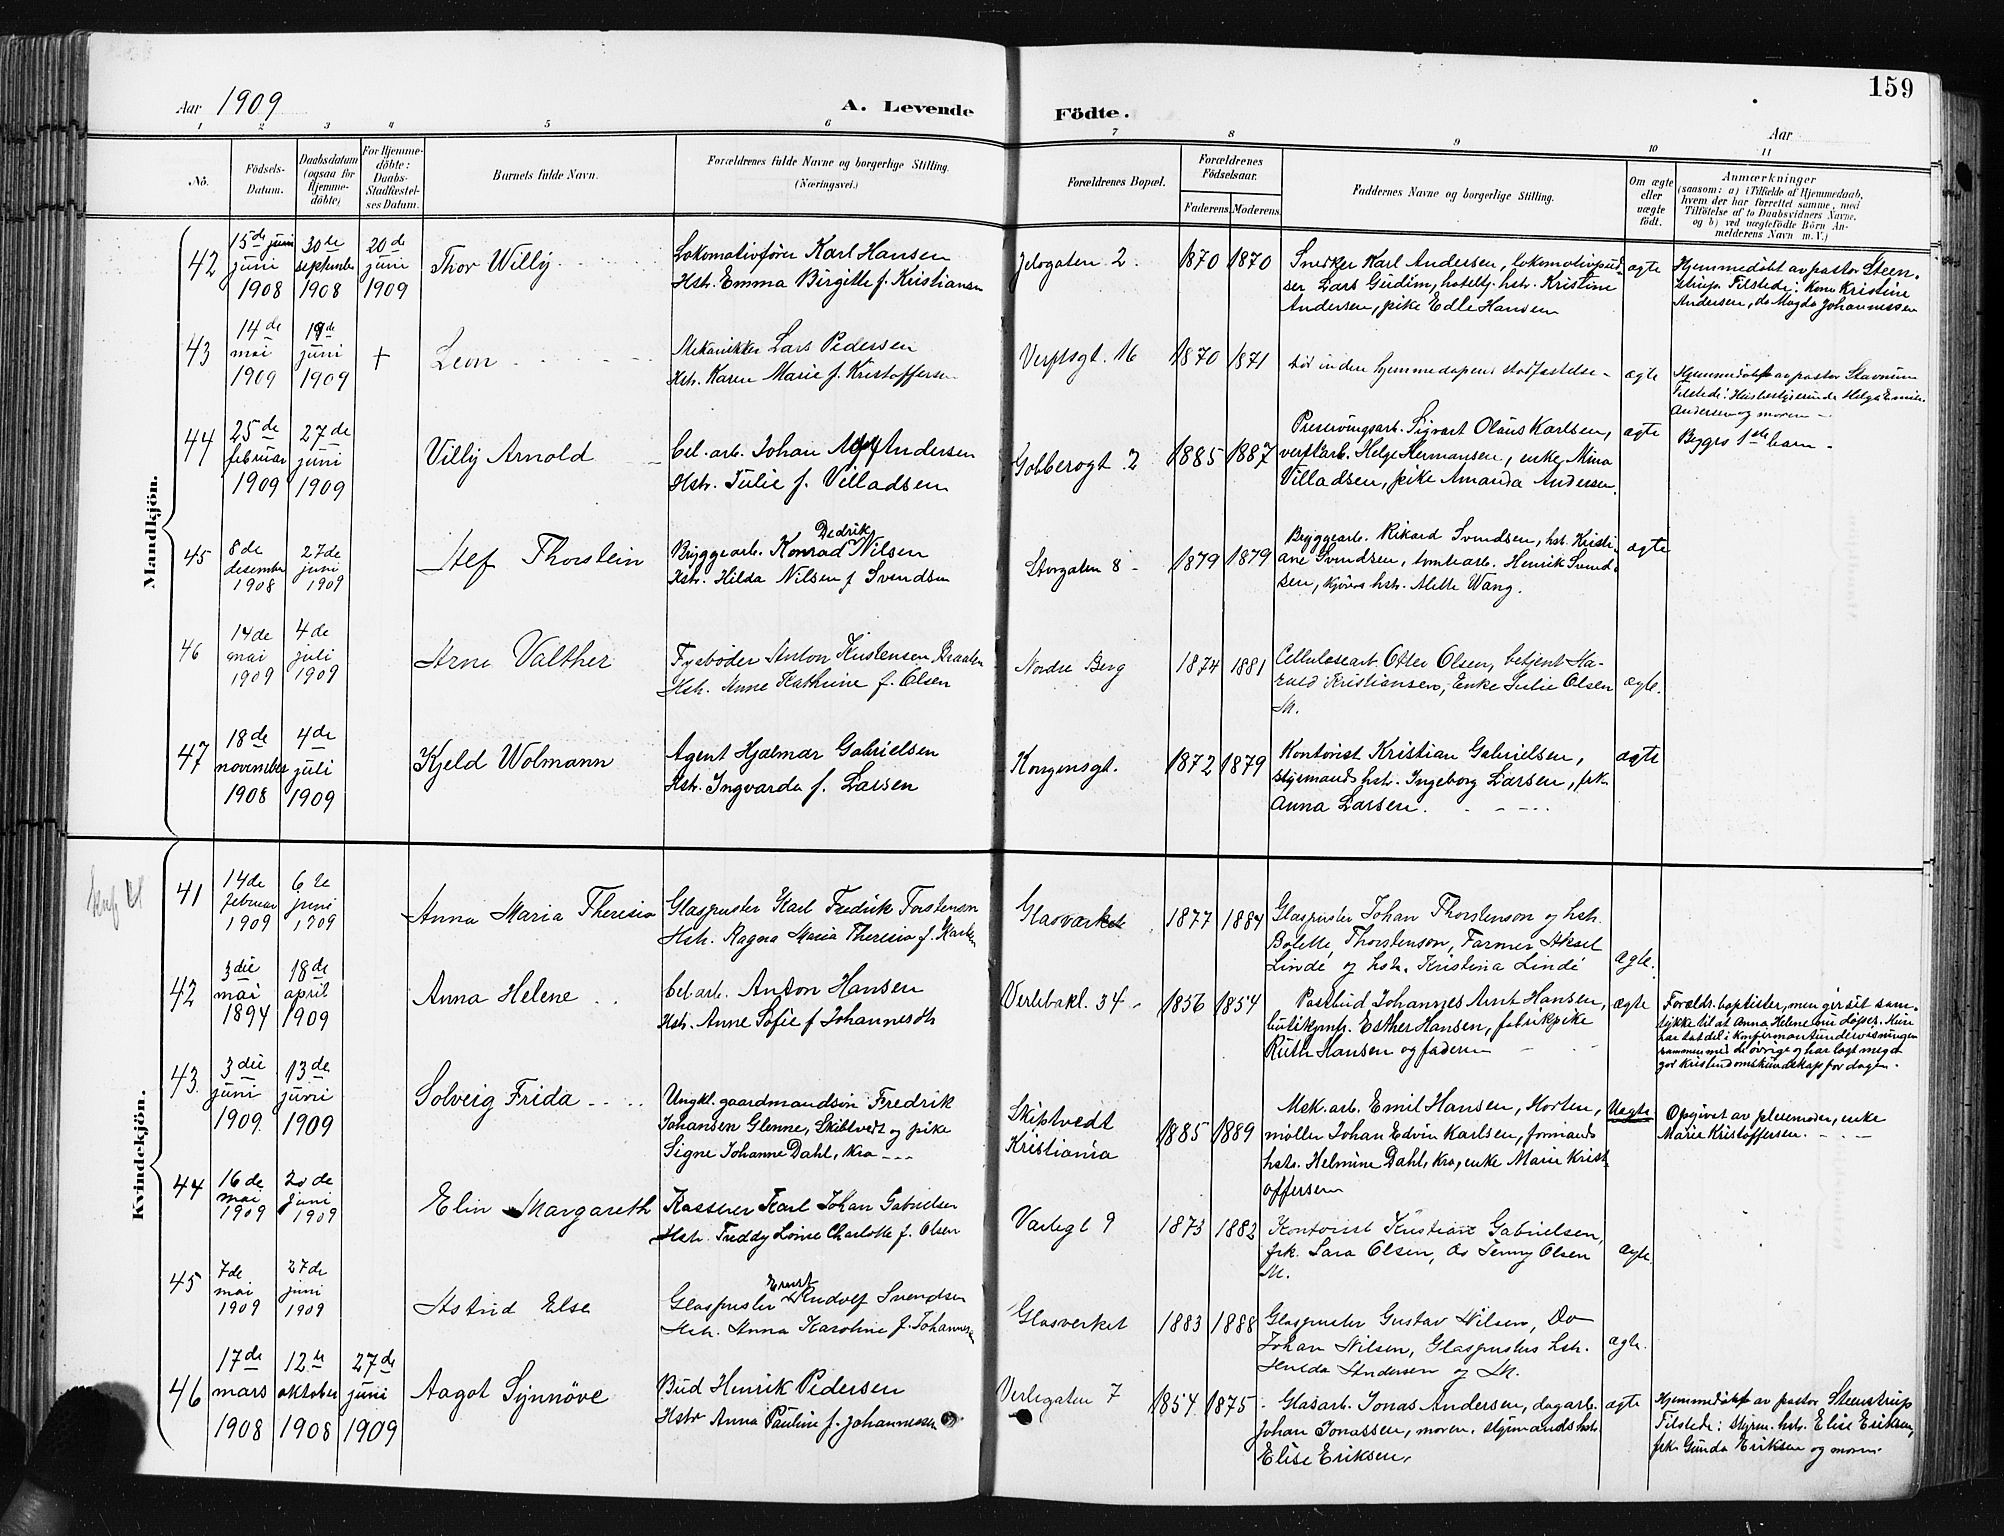 159
Aar 1909
A. Levende Födte.
Aar
1 2 3 4 5 6 7 8 9 10 11
No.
Födsels-Datum.
Daabsdatum (ogsaa for Hjemme-döbte)
For Hjemme-döbte: Daabs-Stadfæstel-ses Datum.
Barnets fulde Navn.
Forældrenes fulde Navne og borgerlige Stilling.
(Næringsvei.)
Forældrenes Bopæl.
Forældrenes Födselsaar.
Faderens. Moderens.
Faddernes Navne og borgerlige Stilling.
Om ægte eller uægte födt.
Anmærkninger
(saasom: a) i Tilfælde af Hjemmedaab,
hvem der har forrettet samme, med
Tilföielse af to Daabsvidners Navne,
og b) ved uægtefödte Börn An-
melderens Navn m. V.)
Mandkjön.
42
15de juni
juni
1908
30te
september
1908
20de
juni
1909
Thor Willy
Lokomotivfører Karl Hansen
Hstr. Emma Birgitte f. Kristiansen
Jeløgaten 2.
1870 1870
Snedker Karl Andersen, lokomotivpud-
ser Lars Geidim, hstr. Kristine
Andersen, pike Edle Hansen
ægte
Hjemmedøbt av pastor Steen-
strup. Tilstede: Kone Kristine
Andersen, do Magda Johannessen
43
14de
mai
1909
19de
juni
1909
+
Leon
Mekanikker Lars Pedersen
Hstr. Karen Marie f. Kristoffersen
Verftsgt. 16
1870 1871
død inden hjemmedaapens stadfæstelse -
ægte
Hjemmedøbt av pastor Stavnum
Tilstede: Husbestyrerinde Helga Emilie
Andersen og moren -
44
25de
februar
1909
27de
juni
1909
Villy Arnold
Cel. arb. Johan Andersen
Hstr. Julie f. Villadsen
Gobberogt 2
1885 1887
Preservingsarb. Sigvart Olaus Karlsen,
verftarb. Helge Hermansen, enke Mina
Villadsen, pike Amanda Andersen.
ægte
Bygrs 1ste barn -
45
8de
desember
1908
27de
juni
1909
Alf Thorstein
Dedrik
Bryggearb. Konrad Nilsen
Hstr. Hilda Nilsen f Svendsen
Storgaten 8 -
1879 1879
Bryggearb. Rikard Svendsen, hst. Kristi-
ane Svendsen, tomtearb. Henrik Svend-
sen, kjørers hstr. Alette Wang.
ægte
46
14de
mai
1909
4de
juli
1909
Arne Valther
Fyrbøder Anton Kristensen Braaten
Hstr. Anne Kathrine f. Olsen
Nordre Berg
1874 1881
Cellulosearb Otter Olsen, betjent Ha-
rald Kristiansen, Enke Julie Olsen
M.
ægte.
47
18de
november
1908
4de
juli
1909
Kjeld Wolmann
Agent Hjalmar Gabrielsen
Hstr. Ingvarda f. Larsen
Kongensgt.
1872 1879
Kontorist Kristian Gabrielsen,
styrmands hstr. Ingeborg Larsen, frk.
Anna Larsen.
ægte
Kvindekjön.
41
14de
februar
1909
6te
juni
1909
Anna Maria Theresia
Glaspuster Karl Fredrik Torstenson
Hstr. Ragna Maria Theresia f. Karlsen
Glasværket
1877 1884
Glaspuster Johan Thorstenson og hstr.
Bolette Thorstenson, Farmer Aksel
Lindé og hstr. Kristina Lindé
ægte.
42
3die
mai
1894
18de
april
1909
Anna Helene
Cel. arb. Anton Hansen
Hstr. Anne Sofie f Johannesdtr
Verlebakl. 34 -
1856 1854
Postbud Johannes Arnt Hansen,
butikjmfr. Esther Hansen, fabrikpike
Ruth Hansen og faderen
ægte
Forældr. baptister, men gir sit sam-
tykke til at Anna Helene nu døpes. Hun
har tat del i konfirmantundervisningen
sammen med de øvrige og har lagt meget
god kristendomskundskap for dagen.
43.
3die
juni
1909.
13de
juni
1909
Solveig Frida
Ungkl. gaardmandsøn Fredrik
Johansen Glenne, Skibtvedt og pike
Signe Johanne Dahl, Kra
Skiptvedt
Kristiania
1885 1889
Mek. arb. Emil Hansen, Horten,
møller Johan Edvin Karlsen, formands
hstr. Helmine Dahl, Kra, enke Marie Krist-
offersen
Uægte
Opgivet av pleiemoder, enke
Marie Kristoffersen.
44
16de
mai
1909
20de
juni
1909
Elin Margareth
Kasserer Karl Johan Gabrielsen
Hstr. Freddy Lovise Charlotte f. Olsen
Varlegt 9
1873 1882
Kontorist Kristian Gabrielsen,
frk. Sara Olsen, Do Jenny Olsen
M.
ægte
45
7de
mai
1909
27de
juni
1909
Astrid Else
Ernst
Glaspuster Rudolf Svendsen
Hstr. Anna Karoline f. Johannesen
Glasverket
1883 1888
Glaspuster Gustav Nilsen, Do
Johan Nilsen, Glaspusters hstr.
Hulda Andersen og M.
ægte.
46
17de
mars
1908
12te
oktober
1908
27de
juni
1909
Aagot Synnöve
Bud Henrik Pedersen
Hstr Anna Pauline f. Johannessen
Verlegaten 7
1854 1875
Glasarb. Jonas Andersen, dagarb.
Johan Jonassen, moren, styrmands hstr.
Elise Eriksen.
ægte
Hjemmedøbt av pastor Steenstrup
Tilstede: styrm. hstr. Elise Eriksen,
frk. Gunda Eriksen og moren